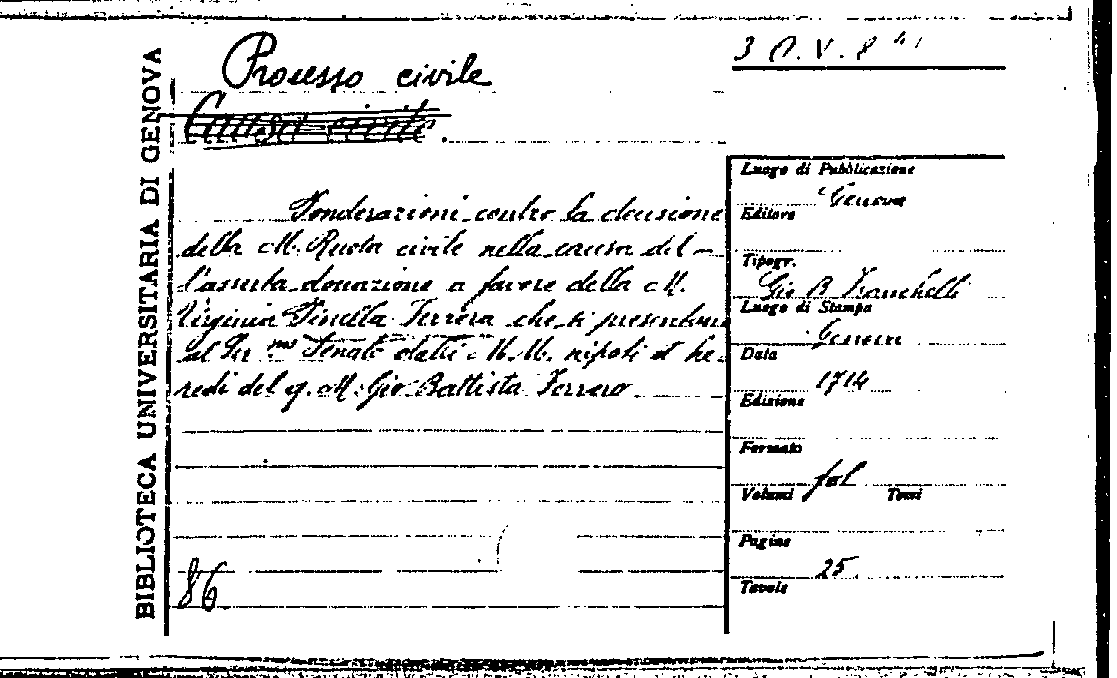 BIBLIOTECA UNIVERSITARIA DI GENOVA
3 V. 8
Processo civile
Causa civile.
Ponderazioni contro la decisione
della M. Ruota civile nella causa del-
l'asserta donazione a favore della M.
Virginia Ferrera che si presentano
al Ser.mo Senato dalli M.M. nipoti et he-
redi del q. M. Gio Battista Ferrero
86
Luogo di Pubblicazione
Genova
Editore
Tipogr.
Gio B. Franchelli
Luogo di Stampa
Genova
Data
1714
Edizione
Formato
fol
Volumi Tomi
Pagine
25
Tavole